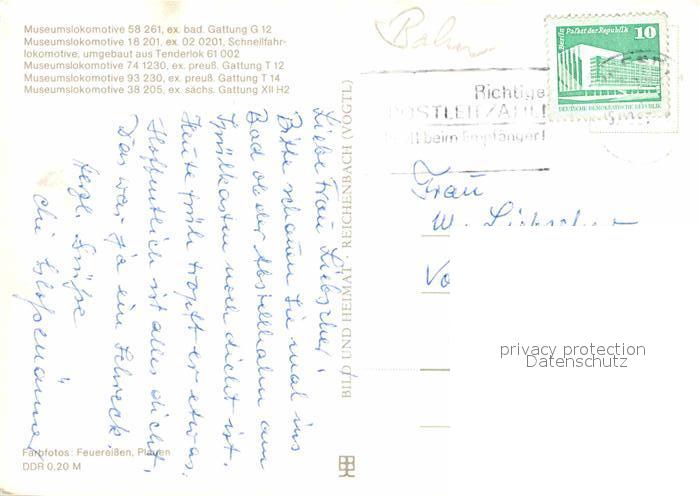 Museumslokomotive 58 261, ex. bad. Gattung G 12
Museumslokomotive 18 201, ex. 02 0201, Schnellfahr-
lokomotive; umgebaut aus Tenderlok 61 002
Museumslokomotive 74 1230, ex. preuß. Gattung T 12
Museumslokomotive 93 230, ex. preuß. Gattung T 14
Museumslokomotive 38 205, ex. sächs. Gattung XII H2
Liebe Frau Liebscher,
Bitte schauen Sie mal ins
Bad ob der Abstellhahn am
Spülkasten noch dicht ist.
Heute früh tropft er etwas.
Hoffentlich ist alles dicht,
Das war ja ein Schreck.
Herzl. Grüße
die
Farbfotos: Feuereißen, Plauen
DDR 0,20 M
BILD UND HEIMAT · REICHENBACH (VOGTL)
Bahn
Berlin Palast der Republik
10
DEUTSCHE DEMOKRATISCHE REPUBLIK
Richtige
POSTLEITZAHL
beim Empfänger!
Frau
W. Liebscher
Vo
privacy protection
Datenschutz